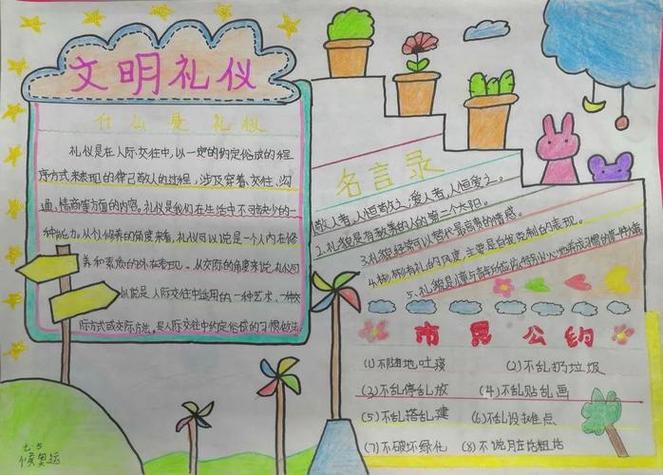 文明礼仪
什么是礼仪
礼仪是在人际交往中,以一定的约定俗成的程
序方式来表现的律己敬人的过程,涉及穿着、交往、沟
通、情商等方面的内容。礼仪是我们在生活中不可缺少的一
种能力。从个人修养的角度来看,礼仪可以说是一个人内在修
养和素质的外在表现。从交际的角度来说,礼仪可
以说是人际交往中适用的一种艺术、一种交
际方式或交际方法,是人际交往中约定俗成的习惯做法。
名言录
敬人者,人恒敬之;爱人者,人恒爱之。
2、礼貌是有教养的人的第二个太阳。
3、礼貌经常可以替代最高贵的情感。
4、彬彬有礼的风度,主要是自我克制的表现。
5、礼貌是儿童与青年所应该特别小心地养成习惯的第一件大事
市民公约
(1)不随地吐痰
(2)不乱扔垃圾
(3)不乱停乱放
(4)不乱贴乱画
(5)不乱搭乱建
(6)不乱设摊点
(7)不破坏绿化
(8)不说脏话粗话
七.5